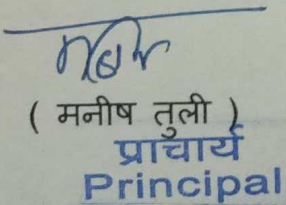 ( मनीष तुली )
प्राचार्य
Principal